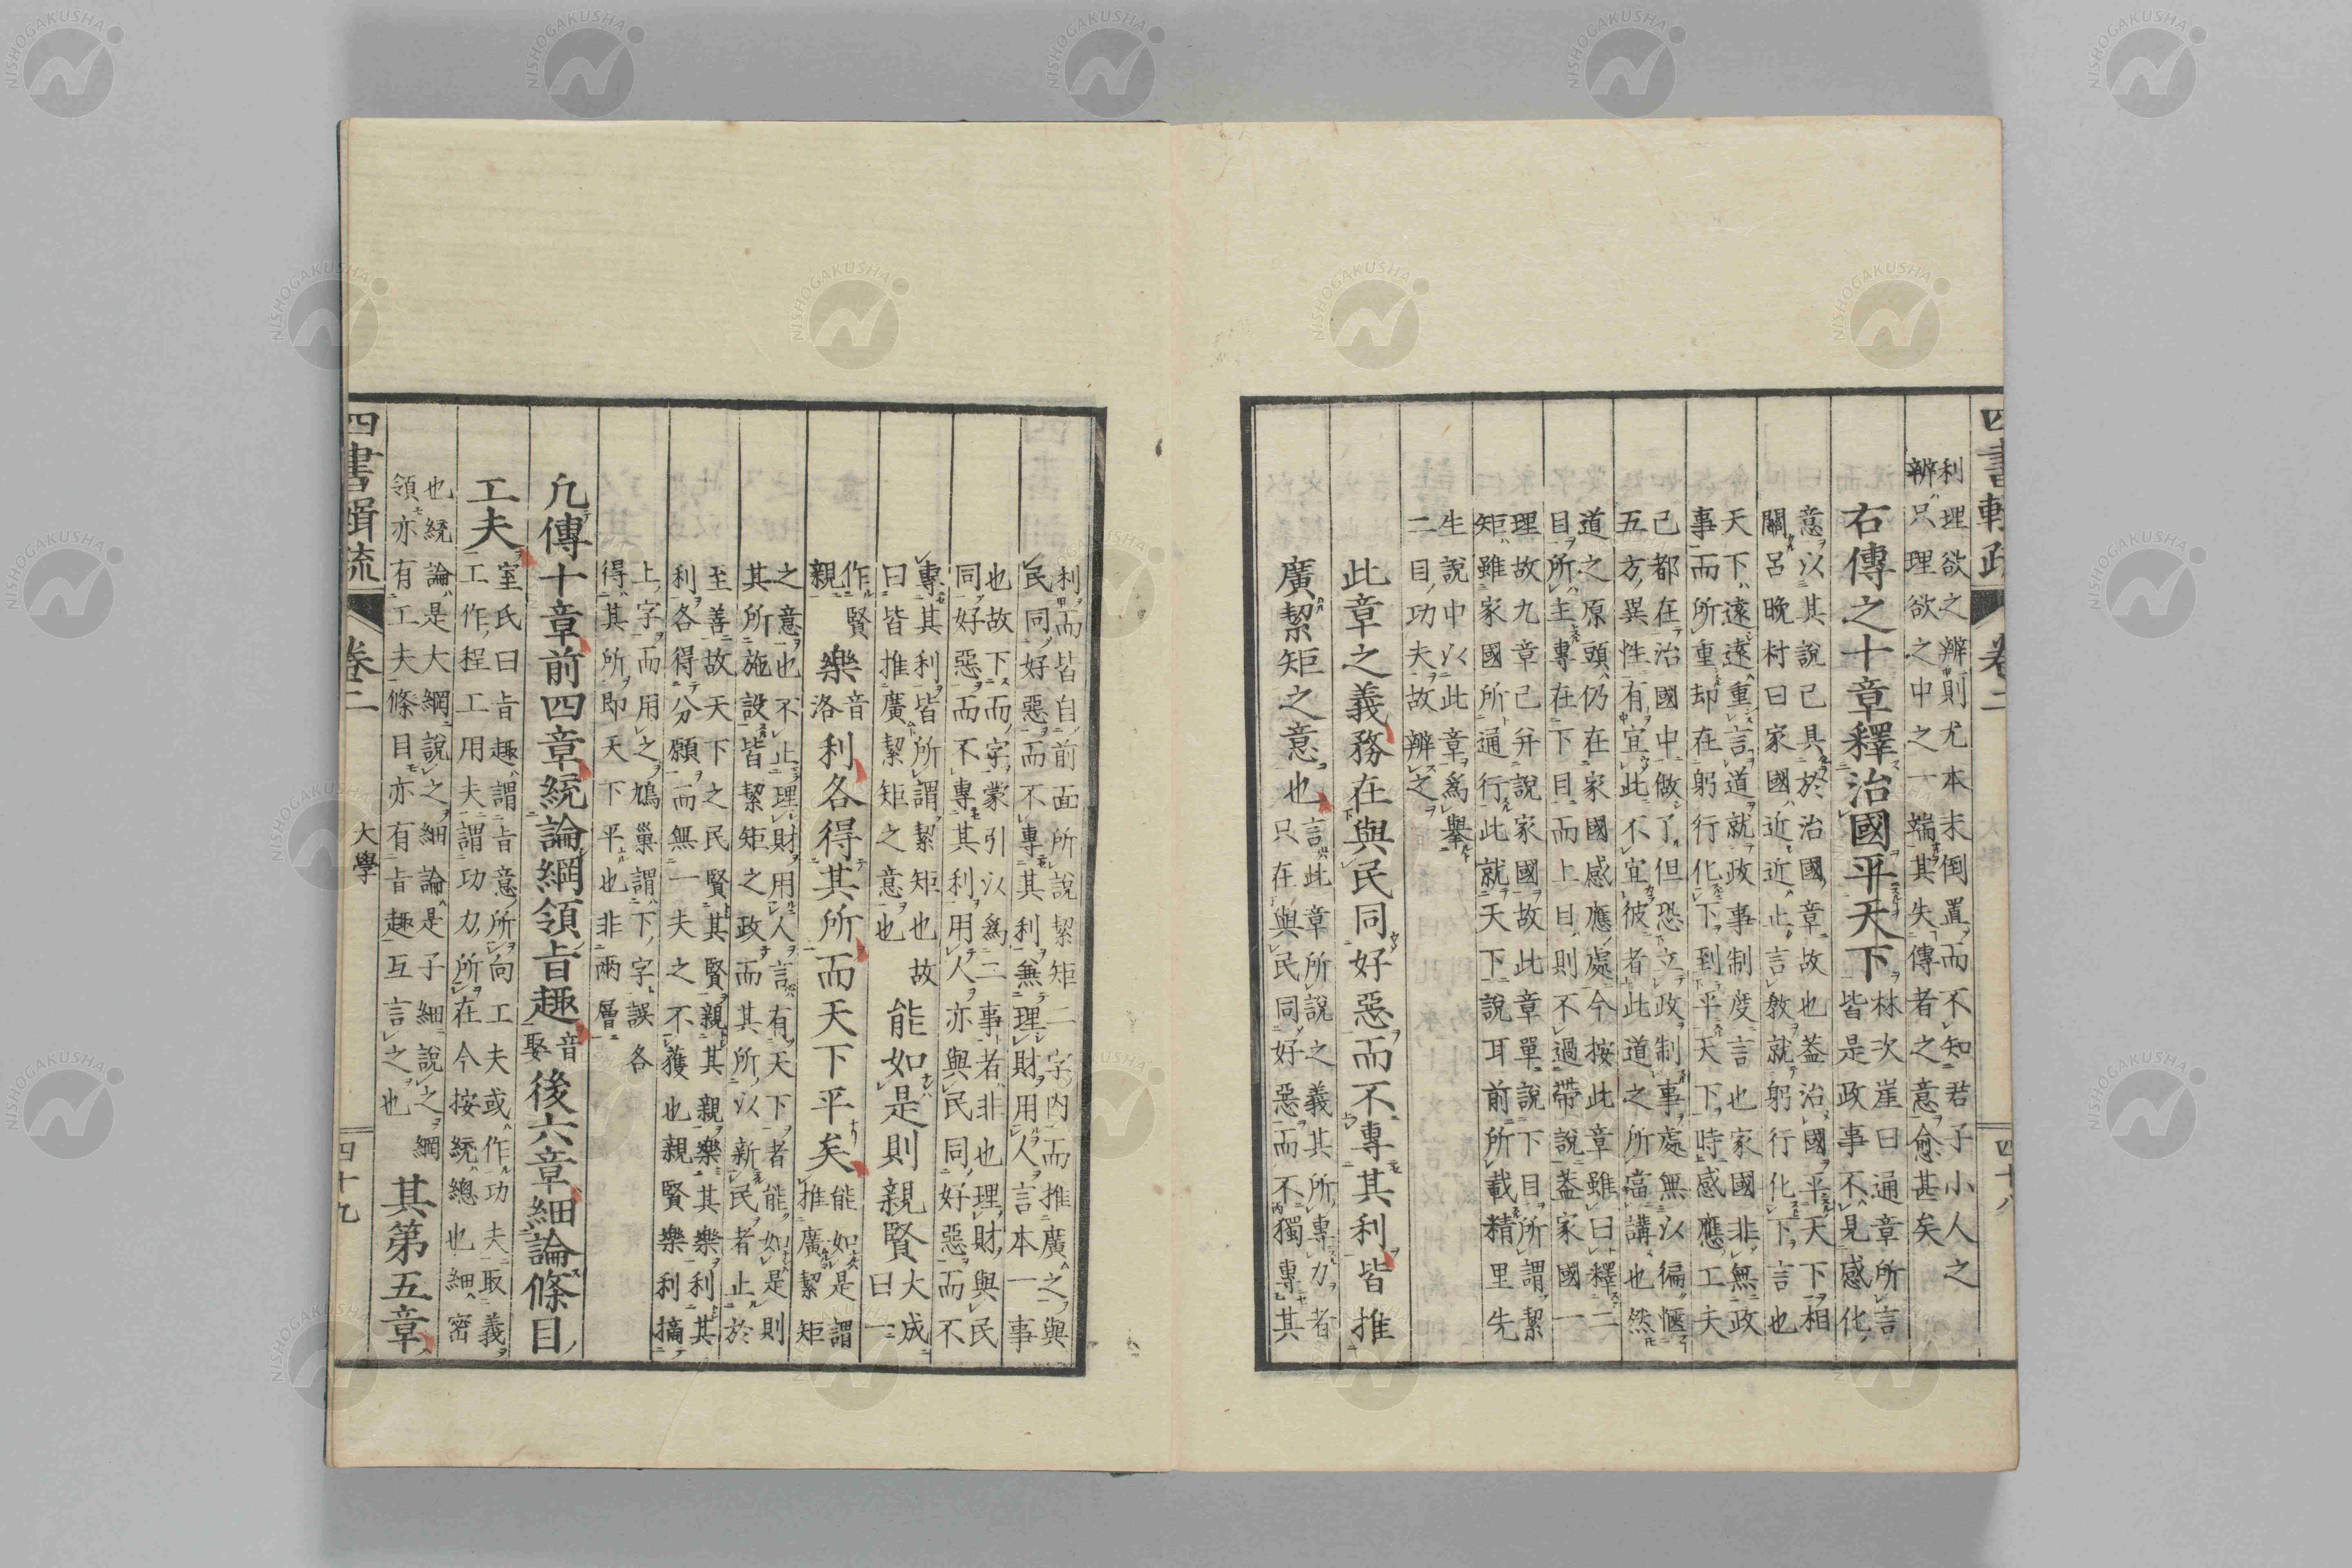 四書輯疏
卷二
四十八
利理欲之辨則尤本末倒置而不知君子小人之
辨只理欲之中之一端其失傳者之意愈甚矣
右傳之十章釋治國平天下
林次崖曰通章所言
皆是政事不見感化
意以其說已具於治國章故也蓋治國平天下相
關呂晚村曰家國近近止言教就躬行化下言也
天下遠遠重言道就政事制度言也家國非無政
事而所重却在躬行化下到平天下時感應工夫
已都在治國中做了但恐立政制事處無以徧愜
五方異性有宜此不宜彼者此道之所當講也然
道之原頭仍在家國感應處今按此章雖曰釋二
目所主專在下目而上目則不過帶說蓋家國一
理故九章已并說家國故此章單說下目所謂絜
矩雖家國所通行此就天下說耳前所載精里先
生說中以此章爲舉
二目功夫故辨之
此章之義務在與民同好惡而不專其利皆推
廣絜矩之意也
言此章所說之義其所專力者
只在與民同好惡而不獨專其
利而皆自前面所說絜矩二字內而推廣之與
民同好惡而不專其利無理財用人言本一事
也故下而字蒙引以爲二事者非也理財與民
同好惡而不專其利用人亦與民同好惡而不
專其利皆所謂絜矩也故
曰皆推廣絜矩之意也
能如是則親賢
大成
曰一
作賢
親
樂
音
洛
利各得其所而天下平矣
能如是謂
推廣絜矩
之意也不止理財用人言有天下者能如是則
其所施設皆絜矩之政而其所以新民者止於
至善故天下之民賢其賢親其親樂其樂利其
利各得分願而無一夫之不獲也親賢樂利摘
上字而用之鳩巢謂下字誤各
得其所即天下平也非兩層
凡傳十章前四章統論綱領旨趣
音
娶
後六章細論條目
工夫
室氏曰旨趣謂旨意所向工夫或作功夫取義
工作程工用夫謂功力所在今按統總也細密
也統論是大綱說之細論是子細說之綱
領亦有工夫條目亦有旨趣互言之也
其第五章
四書輯疏
卷二
大學
四十九
NISHOGAKUSHA